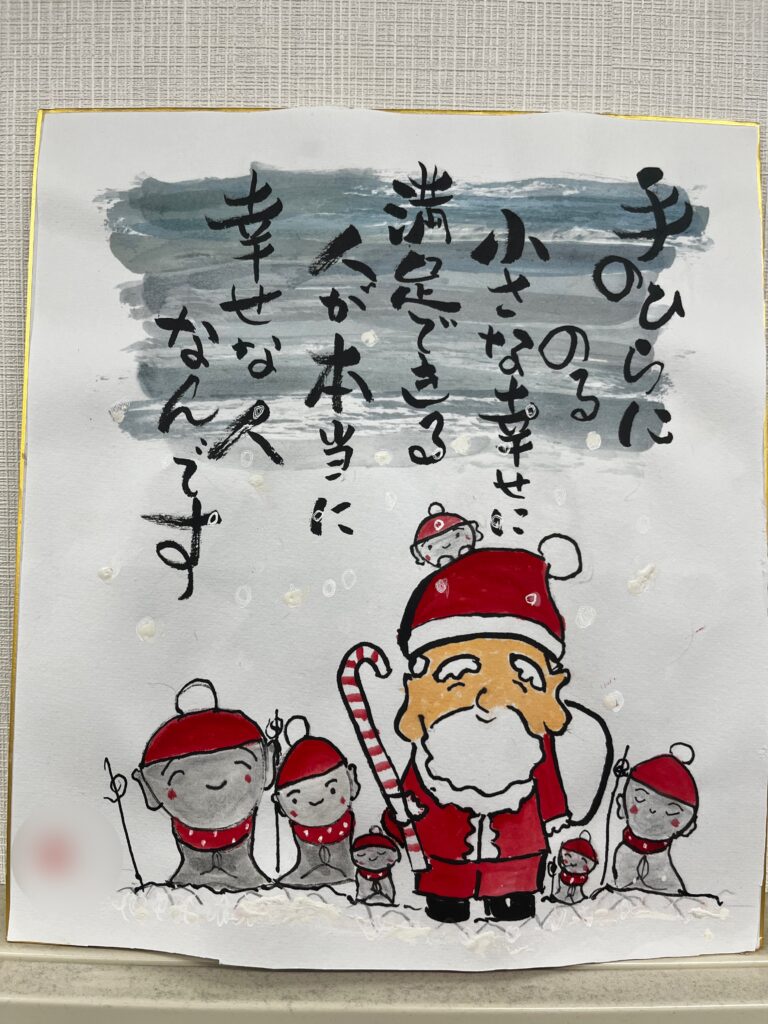 手のひらに
のる
小さな幸せに
満足できる
人が本当に
幸せな人
なんです